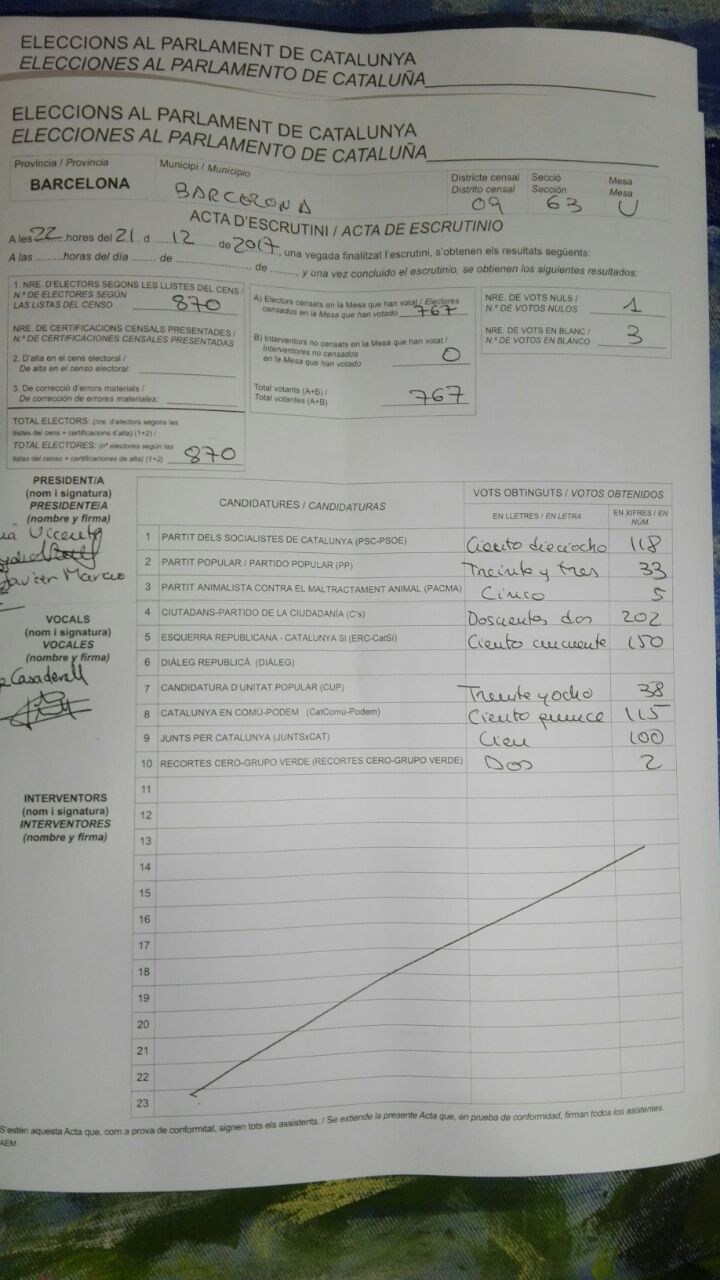 ELECCIONS AL PARLAMENT DE CATALUNYA
ELECCIONES AL PARLAMENTO DE CATALUÑA
ELECCIONS AL PARLAMENT DE CATALUNYA
ELECCIONES AL PARLAMENTO DE CATALUÑA
Província / Provincia
BARCELONA
Municipi / Municipio
BARCELONA
Districte censal
Distrito censal
09
Secció
Sección
63
Mesa
Mesa
U
ACTA D'ESCRUTINI / ACTA DE ESCRUTINIO
A les 22 hores del 21 d 12 de 2017, una vegada finalitzat l'escrutini, s'obtenen els resultats següents:
A las ......... horas del día ........ de ........ de ........, y una vez concluido el escrutinio, se obtienen los siguientes resultados:
1. NRE. D'ELECTORS SEGONS LES LLISTES DEL CENS /
N.º DE ELECTORES SEGÚN
LAS LISTAS DEL CENSO 870
NRE. DE CERTIFICACIONS CENSALS PRESENTADES /
N.º DE CERTIFICACIONES CENSALES PRESENTADAS
2. D'alta en el cens electoral /
De alta en el censo electoral:
3. De correcció d'errors materials /
De corrección de errores materiales:
TOTAL ELECTORS: (nre. d'electors segons les
llistes del cens + certificacions d'alta) (1+2) /
TOTAL ELECTORES: (nº electores según las
listas del censo + certificaciones de alta) (1+2) 870
A) Electors censats en la Mesa que han votat / Electores
censados en la Mesa que han votado 767
B) Interventors no censats en la Mesa que han votat /
Interventores no censados
en la Mesa que han votado 0
Total votants (A+B) /
Total votantes (A+B) 767
NRE. DE VOTS NULS /
N.º DE VOTOS NULOS 1
NRE. DE VOTS EN BLANC /
N.º DE VOTOS EN BLANCO 3
PRESIDENT/A
(nom i signatura)
PRESIDENTE/A
(nombre y firma)
Vicente
Javier Marco
VOCALS
(nom i signatura)
VOCALES
(nombre y firma)
Casadevall
INTERVENTORS
(nom i signatura)
INTERVENTORES
(nombre y firma)
CANDIDATURES / CANDIDATURAS
VOTS OBTINGUTS / VOTOS OBTENIDOS
EN LLETRES / EN LETRA
EN XIFRES / EN NÚM.
1 PARTIT DELS SOCIALISTES DE CATALUNYA (PSC-PSOE) Ciento dieciocho 118
2 PARTIT POPULAR / PARTIDO POPULAR (PP) Treinta y tres 33
3 PARTIT ANIMALISTA CONTRA EL MALTRACTAMENT ANIMAL (PACMA) Cinco 5
4 CIUTADANS-PARTIDO DE LA CIUDADANÍA (C's) Doscientos dos 202
5 ESQUERRA REPUBLICANA - CATALUNYA SÍ (ERC-CatSí) Ciento cincuenta 150
6 DIÀLEG REPUBLICÀ (DIÀLEG)
7 CANDIDATURA D'UNITAT POPULAR (CUP) Treinta y ocho 38
8 CATALUNYA EN COMÚ-PODEM (CatComú-Podem) Ciento quince 115
9 JUNTS PER CATALUNYA (JUNTSxCAT) Cien 100
10 RECORTES CERO-GRUPO VERDE (RECORTES CERO-GRUPO VERDE) Dos 2
11
12
13
14
15
16
17
18
19
20
21
22
23
S'estén aquesta Acta que, com a prova de conformitat, signen tots els assistents. / Se extiende la presente Acta que, en prueba de conformidad, firman todos los asistentes.
AEM